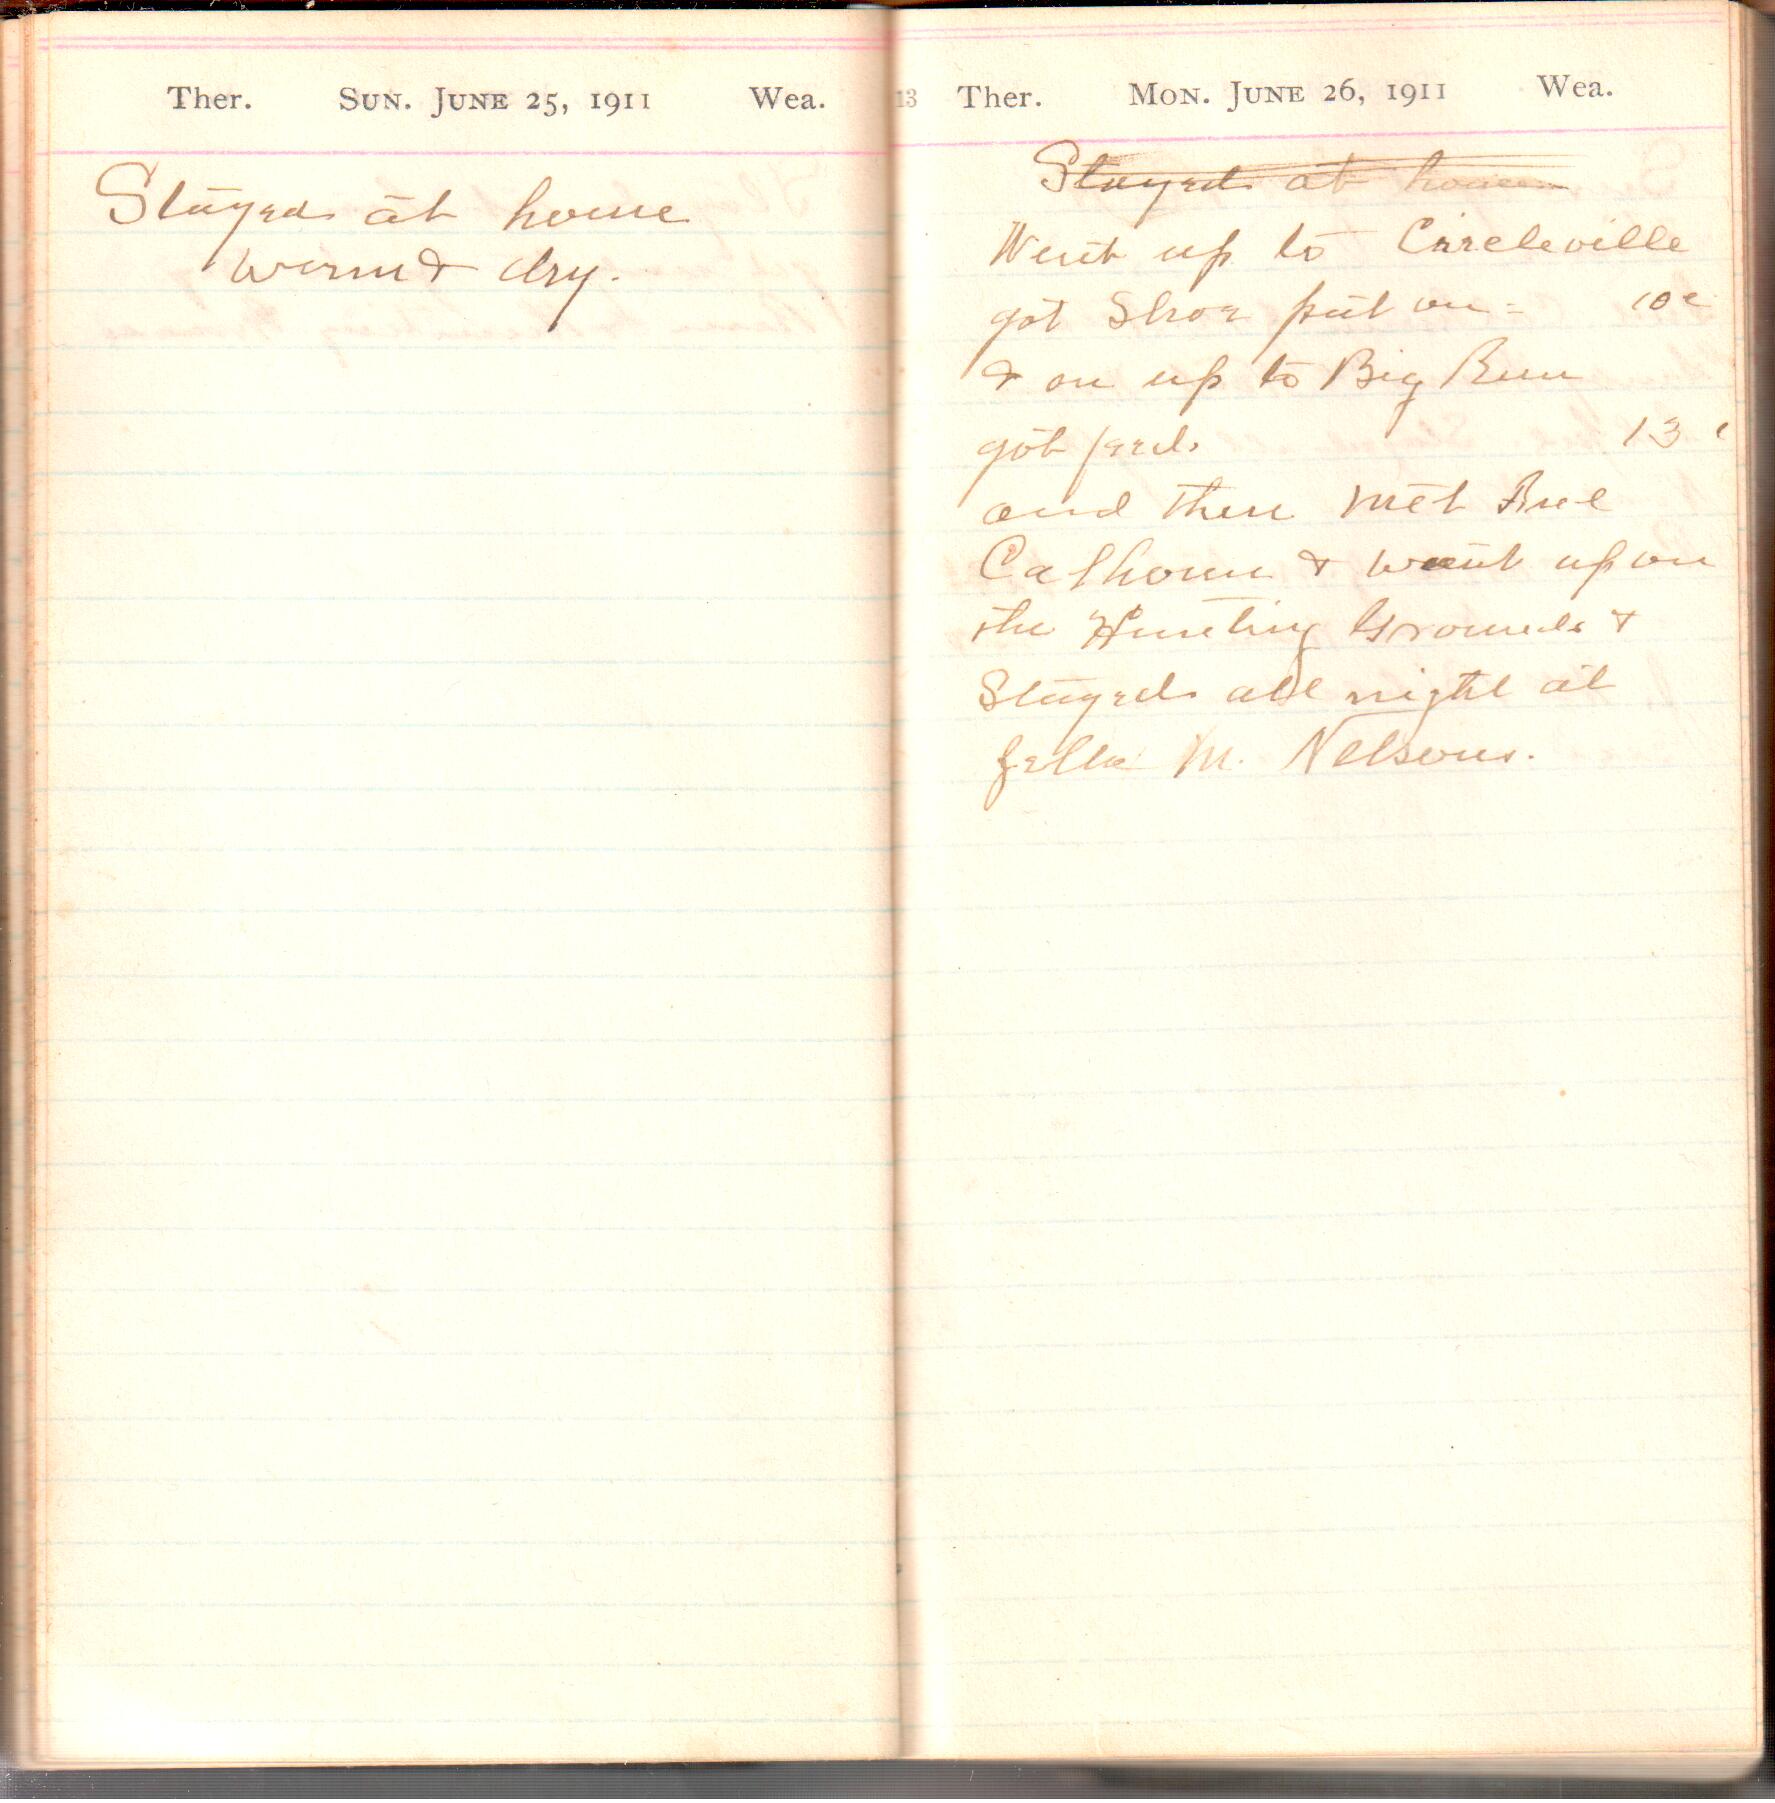 Ther. Sun. June 25, 1911 Wea.
Stayed at home
warm & dry.
13 Ther. Mon. June 26, 1911 Wea.
Stayed at home
Went up to Circleville
got Shoe put on = 10c
& on up to Big Run
got feed. 13 c
and then met
Calhoun & went up on
the Hunting Grounds &
Stayed all night at
M. Nelsons.